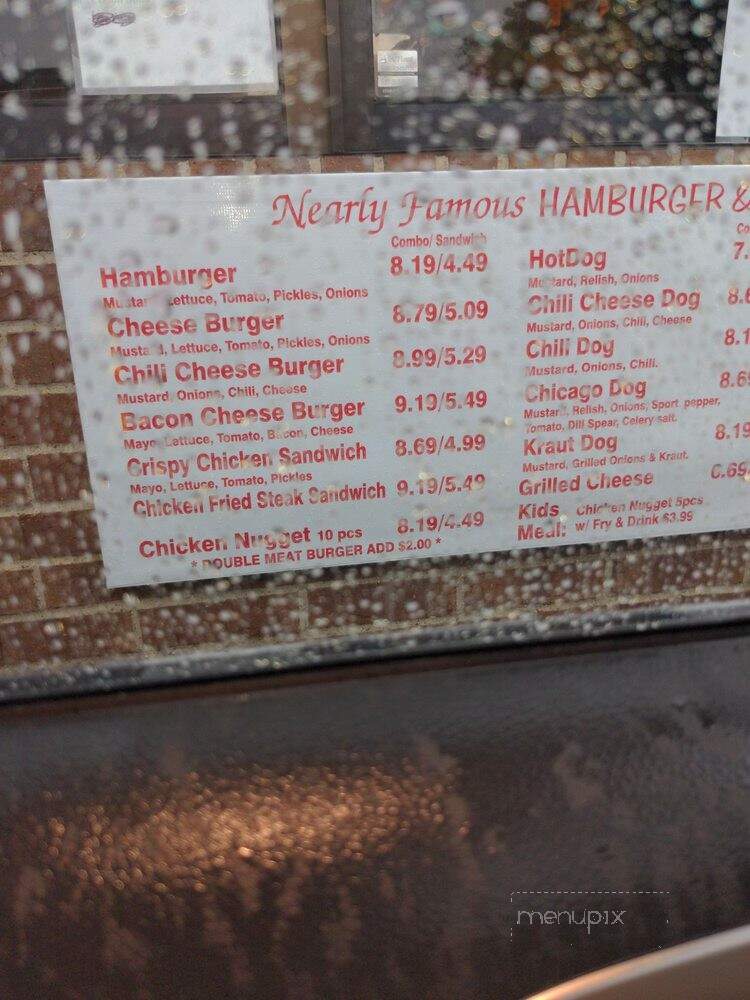 Nearly Famous HAMBURGER &
Combo/ Sandwich
Hamburger 8.19/4.49
Mustard, Lettuce, Tomato, Pickles, Onions
Cheese Burger 8.79/5.09
Mustard, Lettuce, Tomato, Pickles, Onions
Chili Cheese Burger 8.99/5.29
Mustard, Onions, Chili, Cheese
Bacon Cheese Burger 9.19/5.49
Mayo, Lettuce, Tomato, Bacon, Cheese
Crispy Chicken Sandwich 8.69/4.99
Mayo, Lettuce, Tomato, Pickles
Chicken Fried Steak Sandwich 9.19/5.49
Chicken Nugget 10 pcs 8.19/4.49
* DOUBLE MEAT BURGER ADD $2.00 *
Co
HotDog 7.
Mustard, Relish, Onions
Chili Cheese Dog 8.6
Mustard, Onions, Chili, Cheese
Chili Dog 8.1
Mustard, Onions, Chili.
Chicago Dog 8.69
Mustard, Relish, Onions, Sport pepper,
Tomato, Dill Spear, Celery salt.
Kraut Dog 8.19
Mustard, Grilled Onions & Kraut.
Grilled Cheese 6.69
Kids Chicken Nugget 5pcs
Meal: w/ Fry & Drink $3.99
menupix